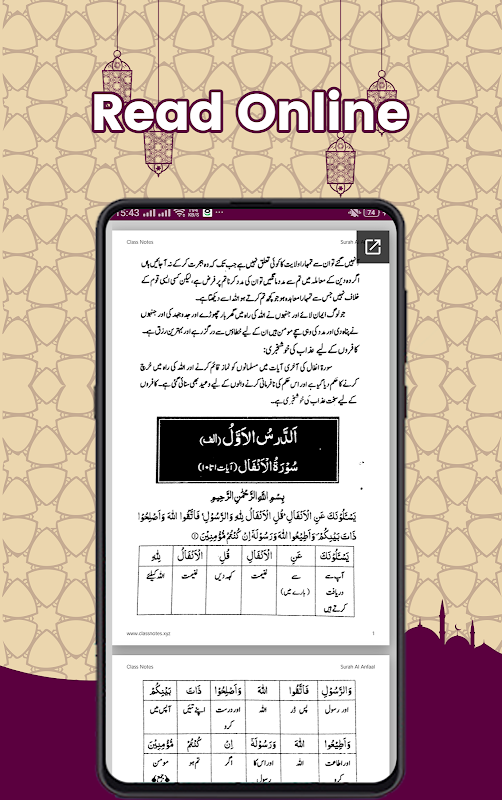 Read Online
15:43
74
Class Notes
Surah A
نہیں گئے تو ان سے تمہارا ولایت کا کوئی تعلق نہیں ہے جب تک کہ وہ ہجرت کر کے نہ آ جائیں ہاں
اگر وہ دین کے معاملہ میں تم سے مدد مانگیں تو ان کی مدد کرنا تم پر فرض ہے، لیکن کسی ایسی قوم کے
خلاف نہیں جس سے تمہارا معاہدہ ہو جو کچھ تم کرتے ہو اللہ اسے دیکھتا ہے۔
جو لوگ ایمان لائے اور جنہوں نے اللہ کی راہ میں گھر بار چھوڑے اور جدوجہد کی اور جنہوں
نے پناہ دی اور مدد کی وہی سچے مومن ہیں ان کے لیے خطاؤں سے درگزر ہے اور بہترین رزق ہے۔
کافروں کے لیے عذاب کی خوشخبری:
سورۃ انفال کی آخری آیات میں مسلمانوں کو نماز قائم کرنے اور اللہ کی راہ میں خرچ
کرنے کا حکم دیا گیا ہے اور اس حکم کی نافرمانی کرنے والوں کے لیے وعید بھی سنائی گئی ہے۔ کافروں
کے لیے سخت عذاب کی خوشخبری ہے۔
اَلدَّرسُ الاَوَّلُ (الف)
سُوْرَةُ الْاَنْفَال (آیات ۱ تا ۱۰)
بِسْمِ اللهِ الرَّحْمٰنِ الرَّحِيْمِ
يَسْـَٔلُوْنَكَ عَنِ الْاَنْفَالِ قُلِ الْاَنْفَالُ لِلّٰهِ وَالرَّسُوْلِ فَاتَّقُوا اللهَ وَاَصْلِحُوْا
ذَاتَ بَيْنِكُمْ وَاَطِيْعُوا اللهَ وَرَسُوْلَهٗ اِنْ كُنْتُمْ مُّؤْمِنِيْنَ ①
يَسْـَٔلُوْنَكَ عَنِ الْاَنْفَالِ قُلِ الْاَنْفَالُ لِلّٰهِ
آپ سے سے غنیمت کہہ دیں غنیمت اللہ کیلئے
دریافت (بارے میں)
کرتے ہیں
www.classnotes.xyz
1
Class Notes
Surah Al Anfaal
وَالرَّسُوْلِ فَاتَّقُوا اللهَ وَاَصْلِحُوْا ذَاتَ بَيْنِكُمْ
اور رسول پس ڈرو اللہ اور درست اپنے تئیں آپس میں
کرو
وَاَطِيْعُوا اللهَ وَرَسُوْلَهٗ اِنْ كُنْتُمْ مُّؤْمِنِيْنَ
اور اطاعت اللہ اور اس کا اگر تم ہو مومن
کرو رسول